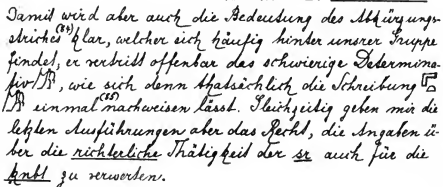 Damit wird aber auch die Bedeutung des Abkürzungs-
striches(84) klar, welcher sich häufig hinter unsrer Gruppe
findet, er vertritt offenbar das schwierige Determina-
tiv, wie sich denn thatsächlich die Schreibung
einmal(85) nachweisen lässt. Gleichzeitig geben mir die
letzten Ausführungen aber das Recht, die Angaben ü-
ber die richterliche Thätigkeit der sr auch für die
knbt zu verwerten.